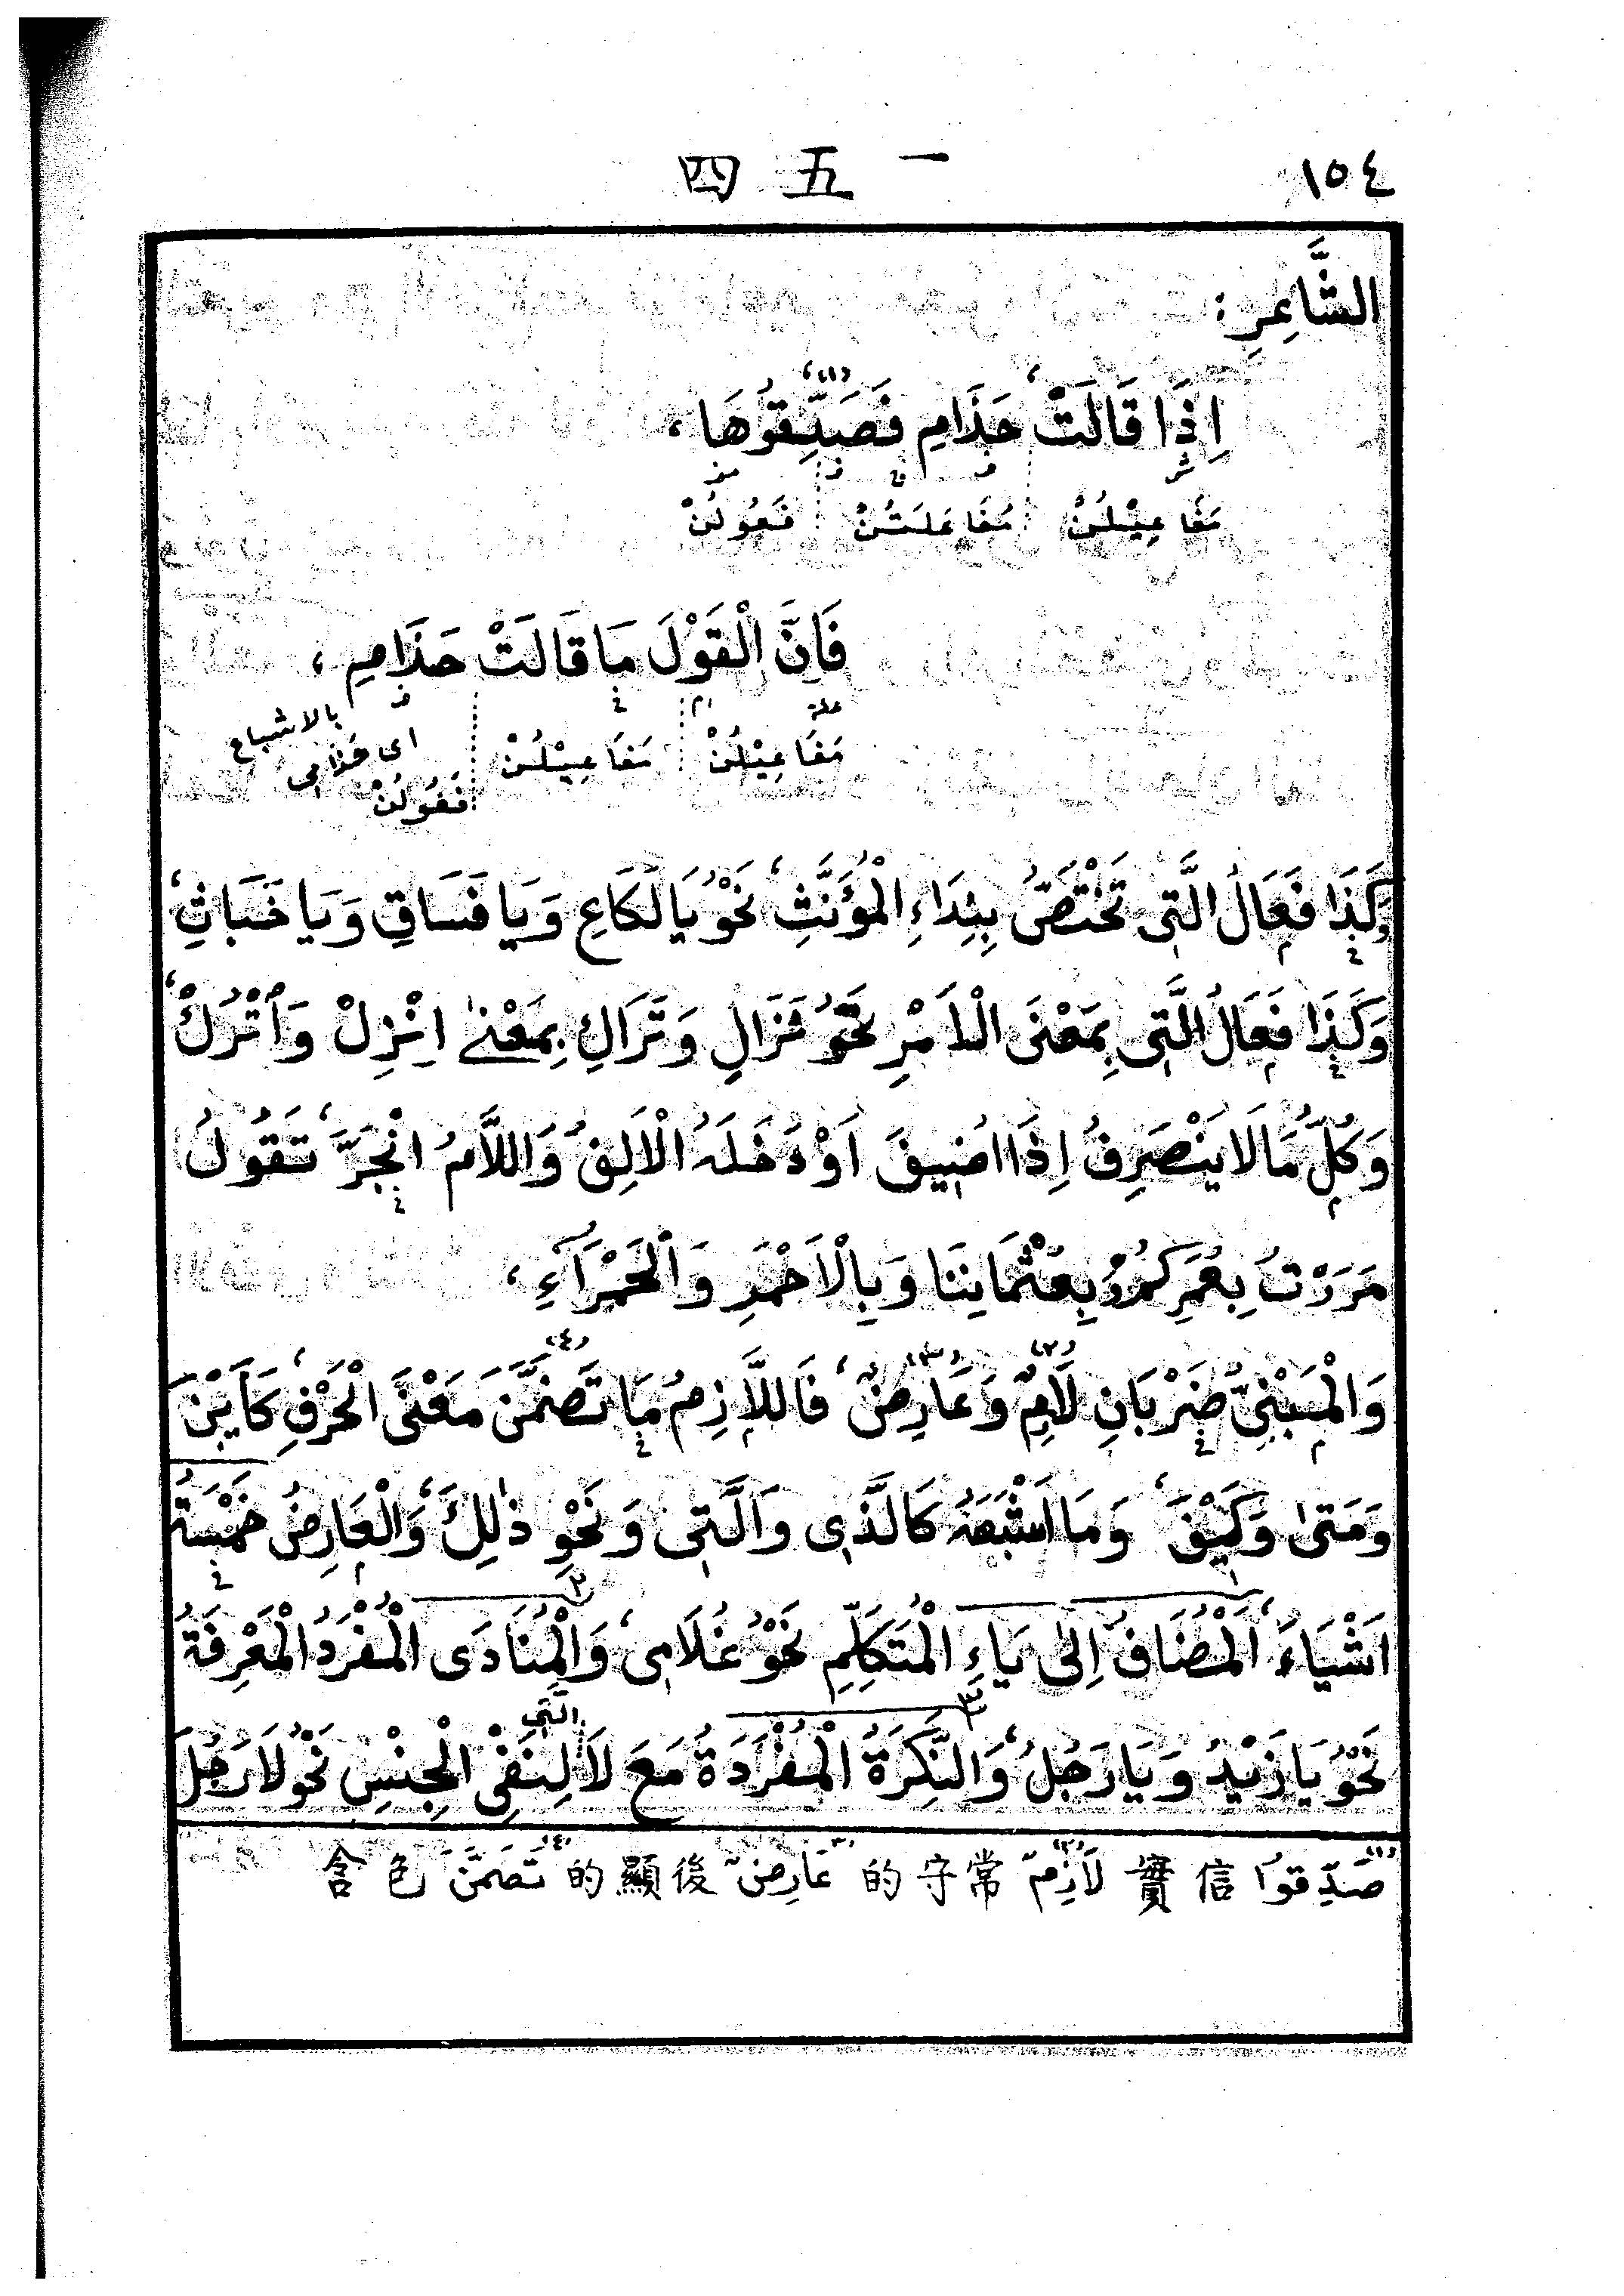 ١٥٤ 一五四
الشَّاعِرِ:
اِذَا قَالَتْ حَذَامِ فَصَدِّقُوْهَا،
مَفَاعِيْلُنْ مُفَاعَلَتُنْ فَعُوْلُنْ
فَاِنَّ الْقَوْلَ مَا قَالَتْ حَذَامِ،
مَفَاعِيْلُنْ مَفَاعِيْلُنْ فَعُوْلُنْ
اى حذامى بالاشباع
وَكَذَا فَعَالُ الَّتِى تَخْتَصُّ بِنِدَاءِ الْمُؤَنَّثِ، نَحْوُ يَا لَكَاعِ وَيَا فَسَاقِ وَيَا خَبَاثِ،
وَكَذَا فَعَالُ الَّتِى بِمَعْنَى الْاَمْرِ نَحْوُ نَزَالِ وَتَرَاكِ بِمَعْنٰى اِنْزِلْ وَاُتْرُكْ،
وَكُلُّ مَا لَا يَنْصَرِفُ اِذَا اُضِيفَ اَوْ دَخَلَهُ الْاَلِفُ وَاللَّامُ انْجَرَّ، تَقُولُ
مَرَرْتُ بِعُمَرِكُمْ وَبِعُثْمَانِنَا وَبِالْاَحْمَرِ وَالْحَمْرَاءِ،
وَالْمَبْنِىُّ ضَرْبَانِ لَازِمٌ وَعَارِضٌ، فَاللَّازِمُ مَا تَضَمَّنَ مَعْنَى الْحَرْفِ، كَاَيْنَ
وَمَتٰى وَكَيْفَ، وَمَا اَشْبَهَهُ كَالَّذِى وَالَّتِى وَنَحْوِ ذٰلِكَ، وَالْعَارِضُ خَمْسَةُ
اَشْيَاءَ، اَلْمُضَافُ اِلٰى يَاءِ الْمُتَكَلِّمِ نَحْوُ غُلَامِى، وَالْمُنَادَى الْمُفْرَدُ الْمَعْرِفَةُ
نَحْوُ يَا زَيْدُ وَيَا رَجُلُ، وَالنَّكِرَةُ الْمُفْرَدَةُ مَعَ لَا الَّتِى لِنَفْىِ الْجِنْسِ نَحْوُ لَا رَجُلَ
(١) صَدِّقُوا 信實 (٢) لَازِمٌ 常守的 (٣) عَارِضٌ 後顯的 (٤) تَضَمَّنَ 包含